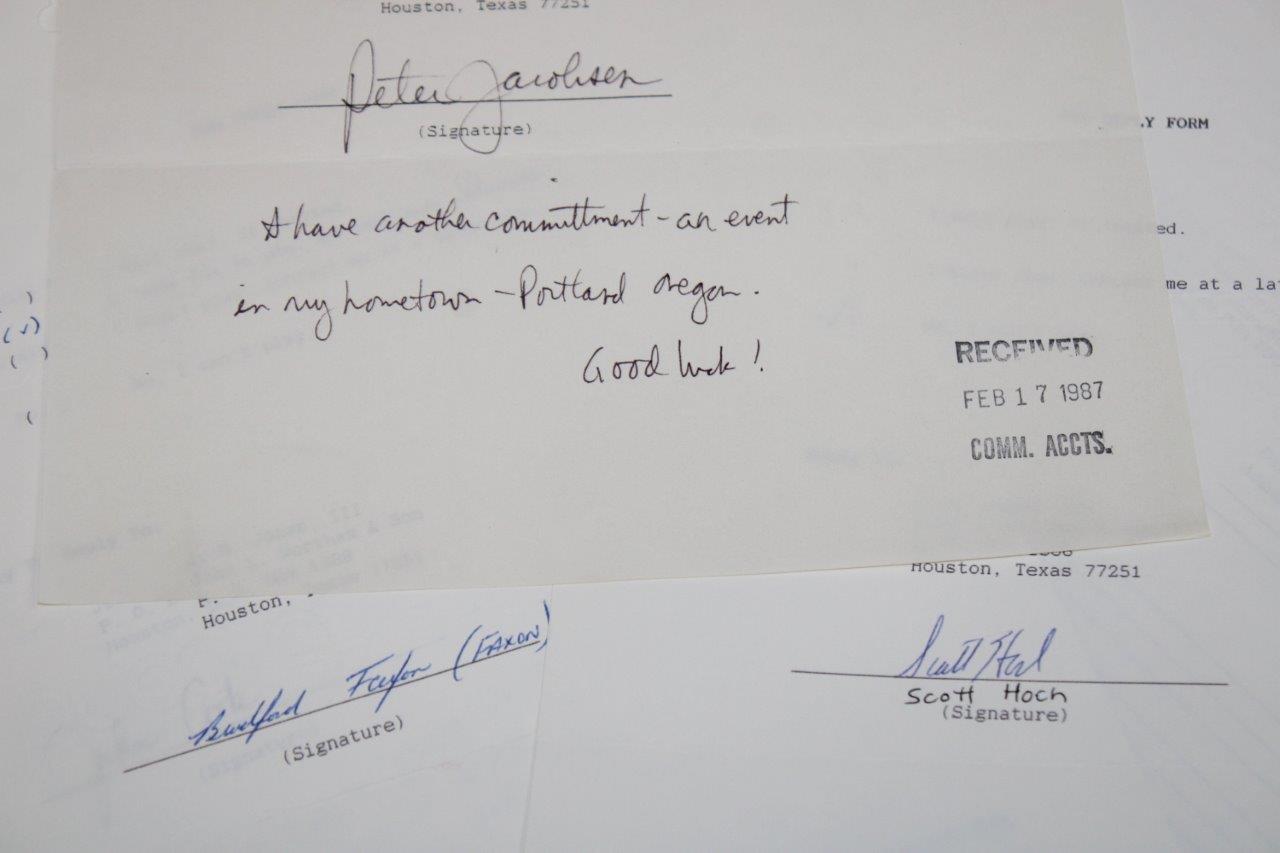 Houston, Texas 77251
Peter Jacobsen
(Signature)
I have another committment - an event
in my hometown - Portland Oregon.
Good luck!
RECEIVED
FEB 17 1987
COMM. ACCTS.
Y FORM
ed.
me at a la
(√)
( )
Houston, Texas 77251
Scott Hoch
Scott Hoch
(Signature)
P.
Houston,
Bradford Faxon (FAXON)
(Signature)